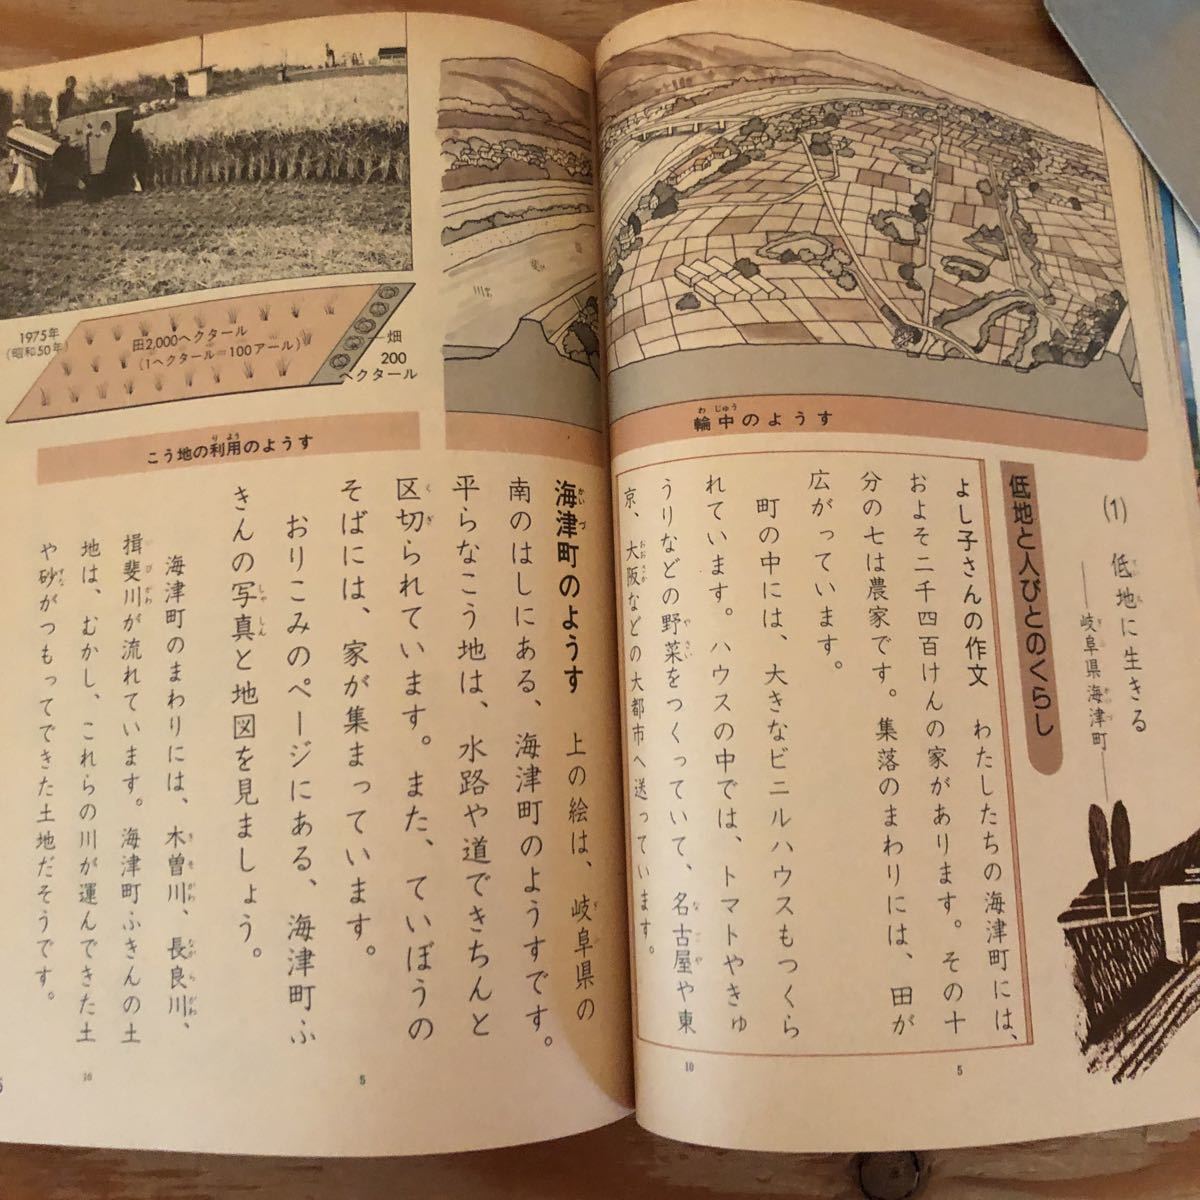 (1) 低地に生きる
――岐阜県海津町――
低地と人びとのくらし
よし子さんの作文　わたしたちの海津町には、
およそ二千四百けんの家があります。その十
分の七は農家です。集落のまわりには、田が
広がっています。
町の中には、大きなビニルハウスもつくら
れています。ハウスの中では、トマトやきゅ
うりなどの野菜をつくっていて、名古屋や東
京、大阪などの大都市へ送っています。
5
10
輪中のようす
海津町のようす　上の絵は、岐阜県の
南のはしにある、海津町のようすです。
平らなこう地は、水路や道できちんと
区切られています。また、ていぼうの
そばには、家が集まっています。
おりこみのページにある、海津町ふ
きんの写真と地図を見ましょう。
海津町のまわりには、木曽川、長良川、
揖斐川が流れています。海津町ふきんの土
地は、むかし、これらの川が運んできた土
や砂がつもってできた土地だそうです。
5
10
1975年
(昭和50年)
田2,000ヘクタール
(1ヘクタール=100アール)
畑
200
ヘクタール
こう地の利用のようす